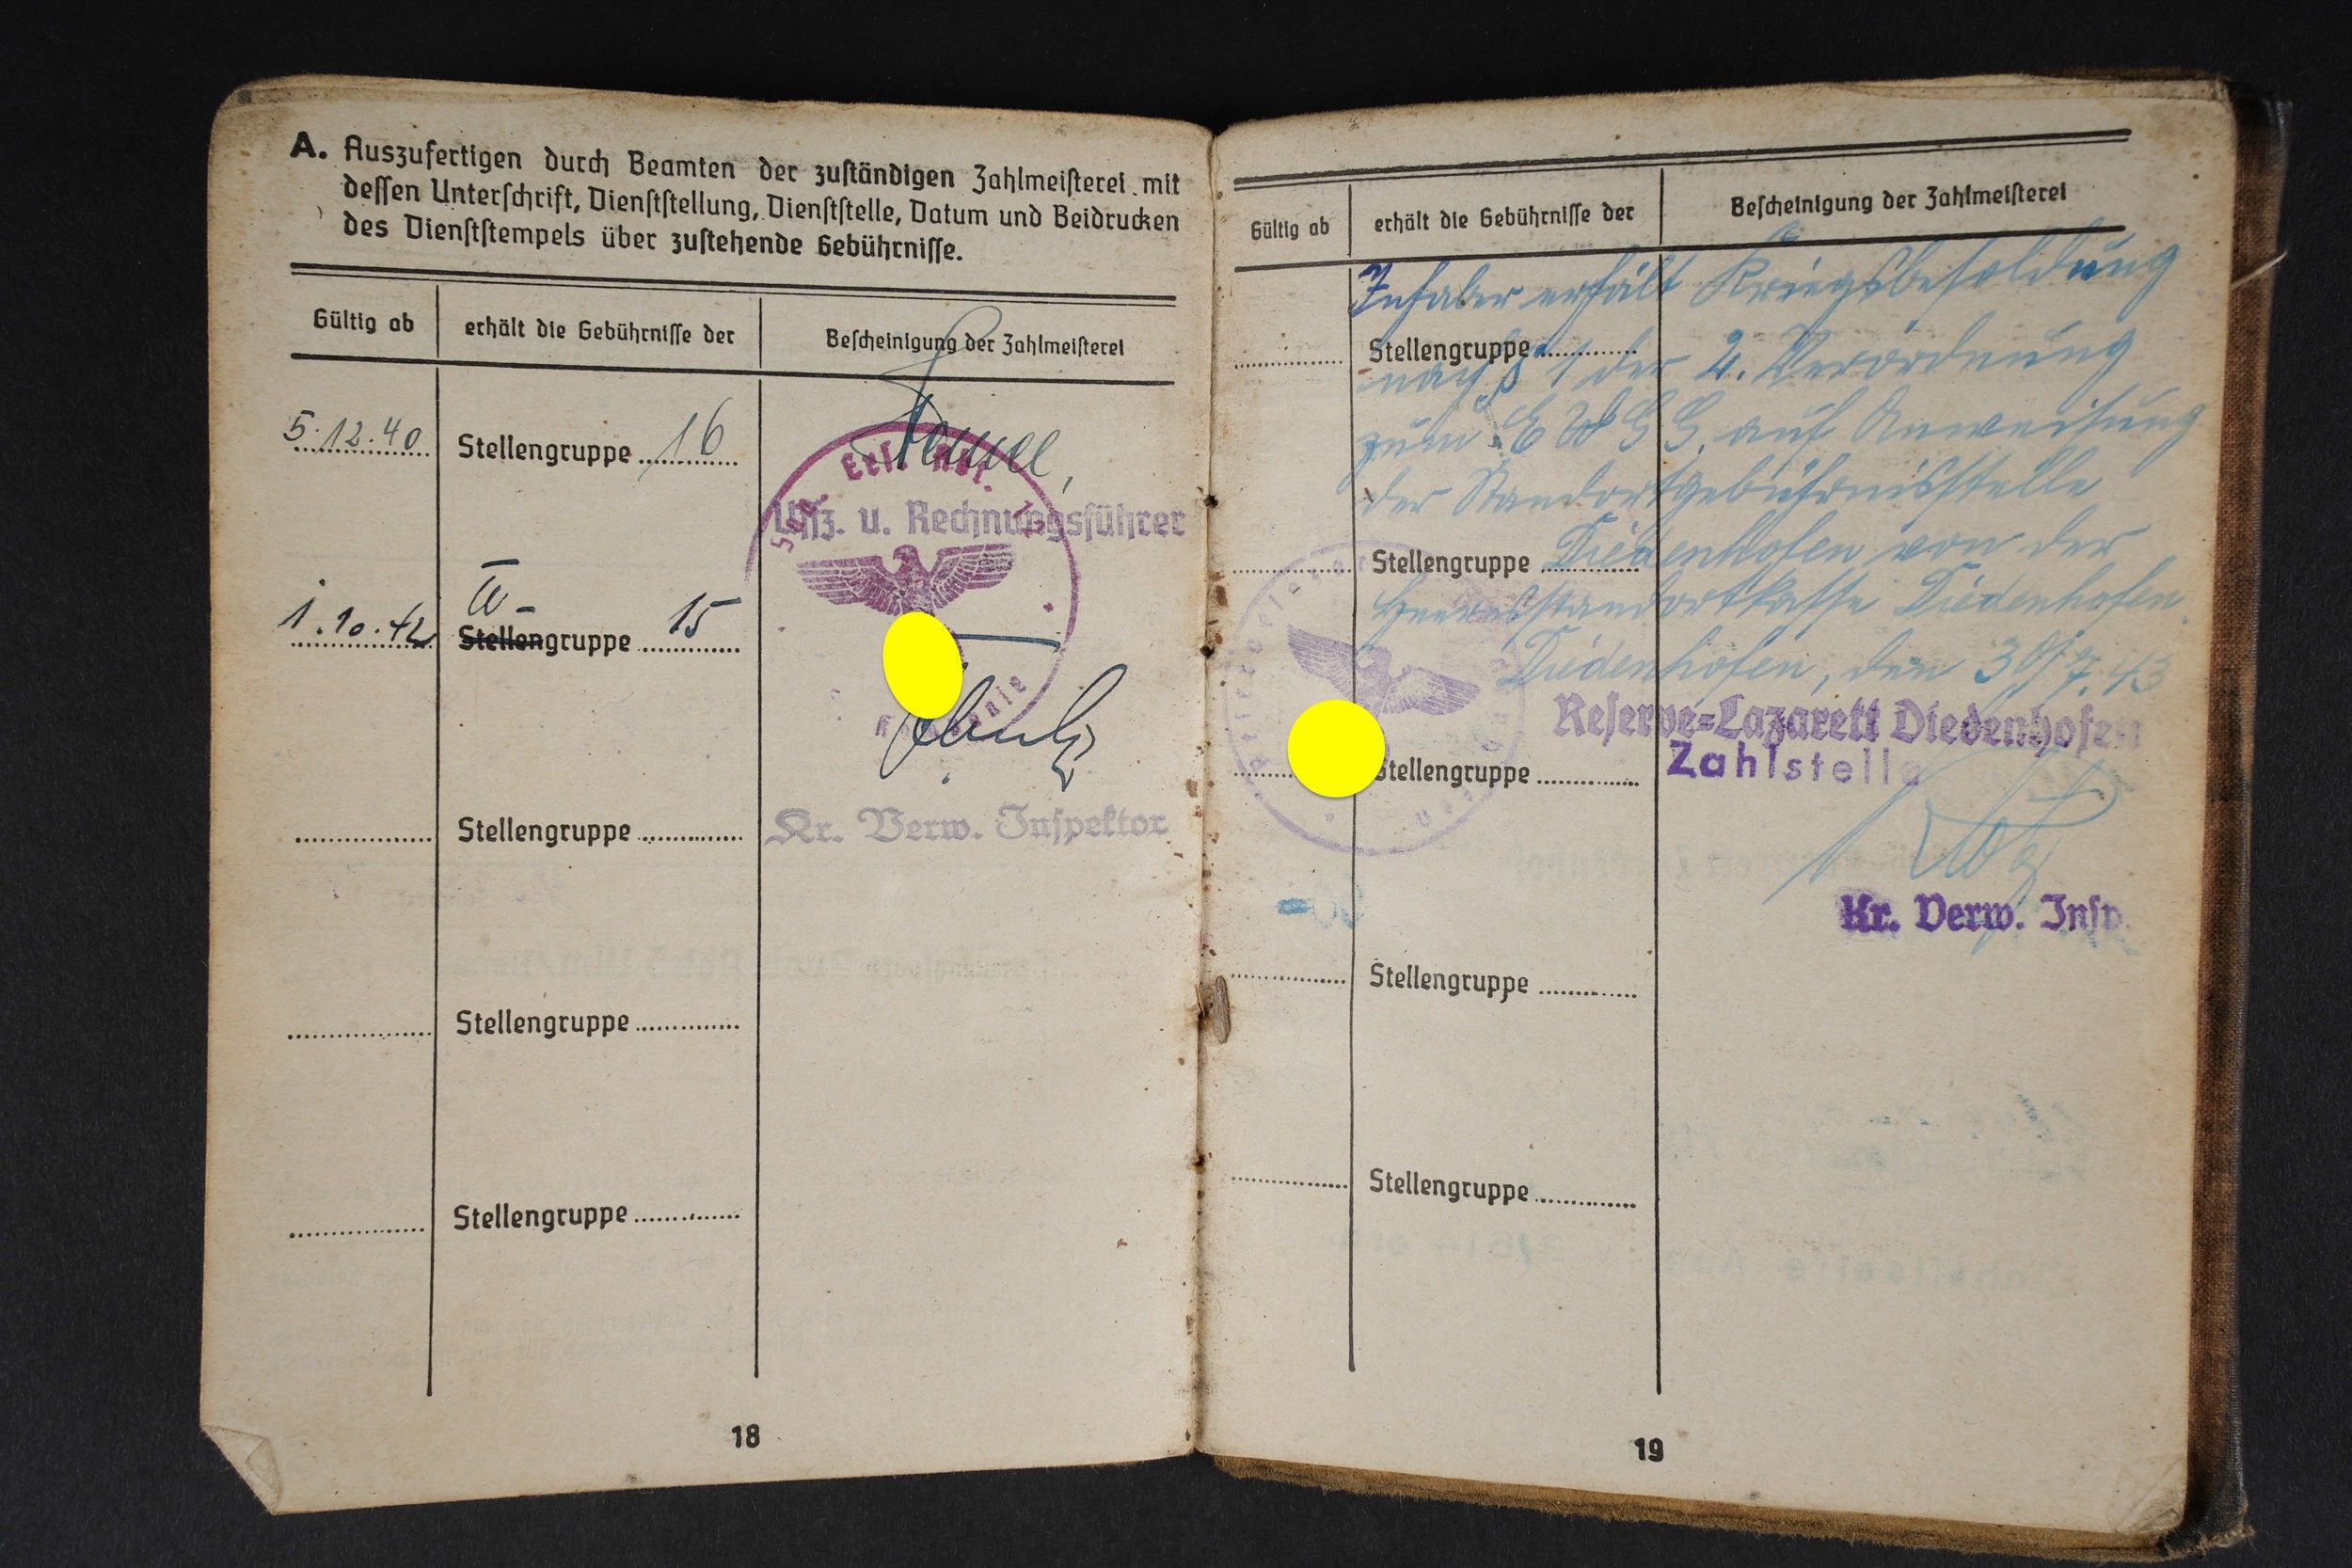 A. Auszufertigen durch Beamten der zuständigen Zahlmeisterei mit
dessen Unterschrift, Dienststellung, Dienststelle, Datum und Beidrucken
des Dienststempels über zustehende Gebührnisse.
Gültig ab
erhält die Gebührnisse der
Bescheinigung der Zahlmeisterei
5.12.40
Stellengruppe 16
Uffz. u. Rechnungsführer
1.10.42
W-
Stellengruppe 15
Stellengruppe
Kr. Verw. Inspektor
Stellengruppe
Stellengruppe
18
Gültig ab
erhält die Gebührnisse der
Bescheinigung der Zahlmeisterei
Inhaber erhält Kriegsbesoldung
Stellengruppe
nach § 1 der 2. Verordnung
zum E W G G. auf Anweisung
der Standortgebührnisstelle
Stellengruppe
Diedenhofen von der
Heeresstandortkasse Diedenhofen.
Diedenhofen, den 30/7.43
Reserve=Lazarett Diedenhofen
Zahlstelle
Stellengruppe
Kr. Verw. Insp.
Stellengruppe
Stellengruppe
19